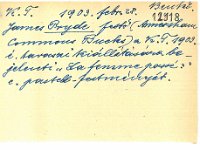 K. T. 1903. febr. 28. Bentső
12918.
James Pryde festő (Amersham
Commons Bucks) a K. T. 1903.
i. tavaszi kiállítására be-
jelenti "La femme posé"
c. pastell-festményét.